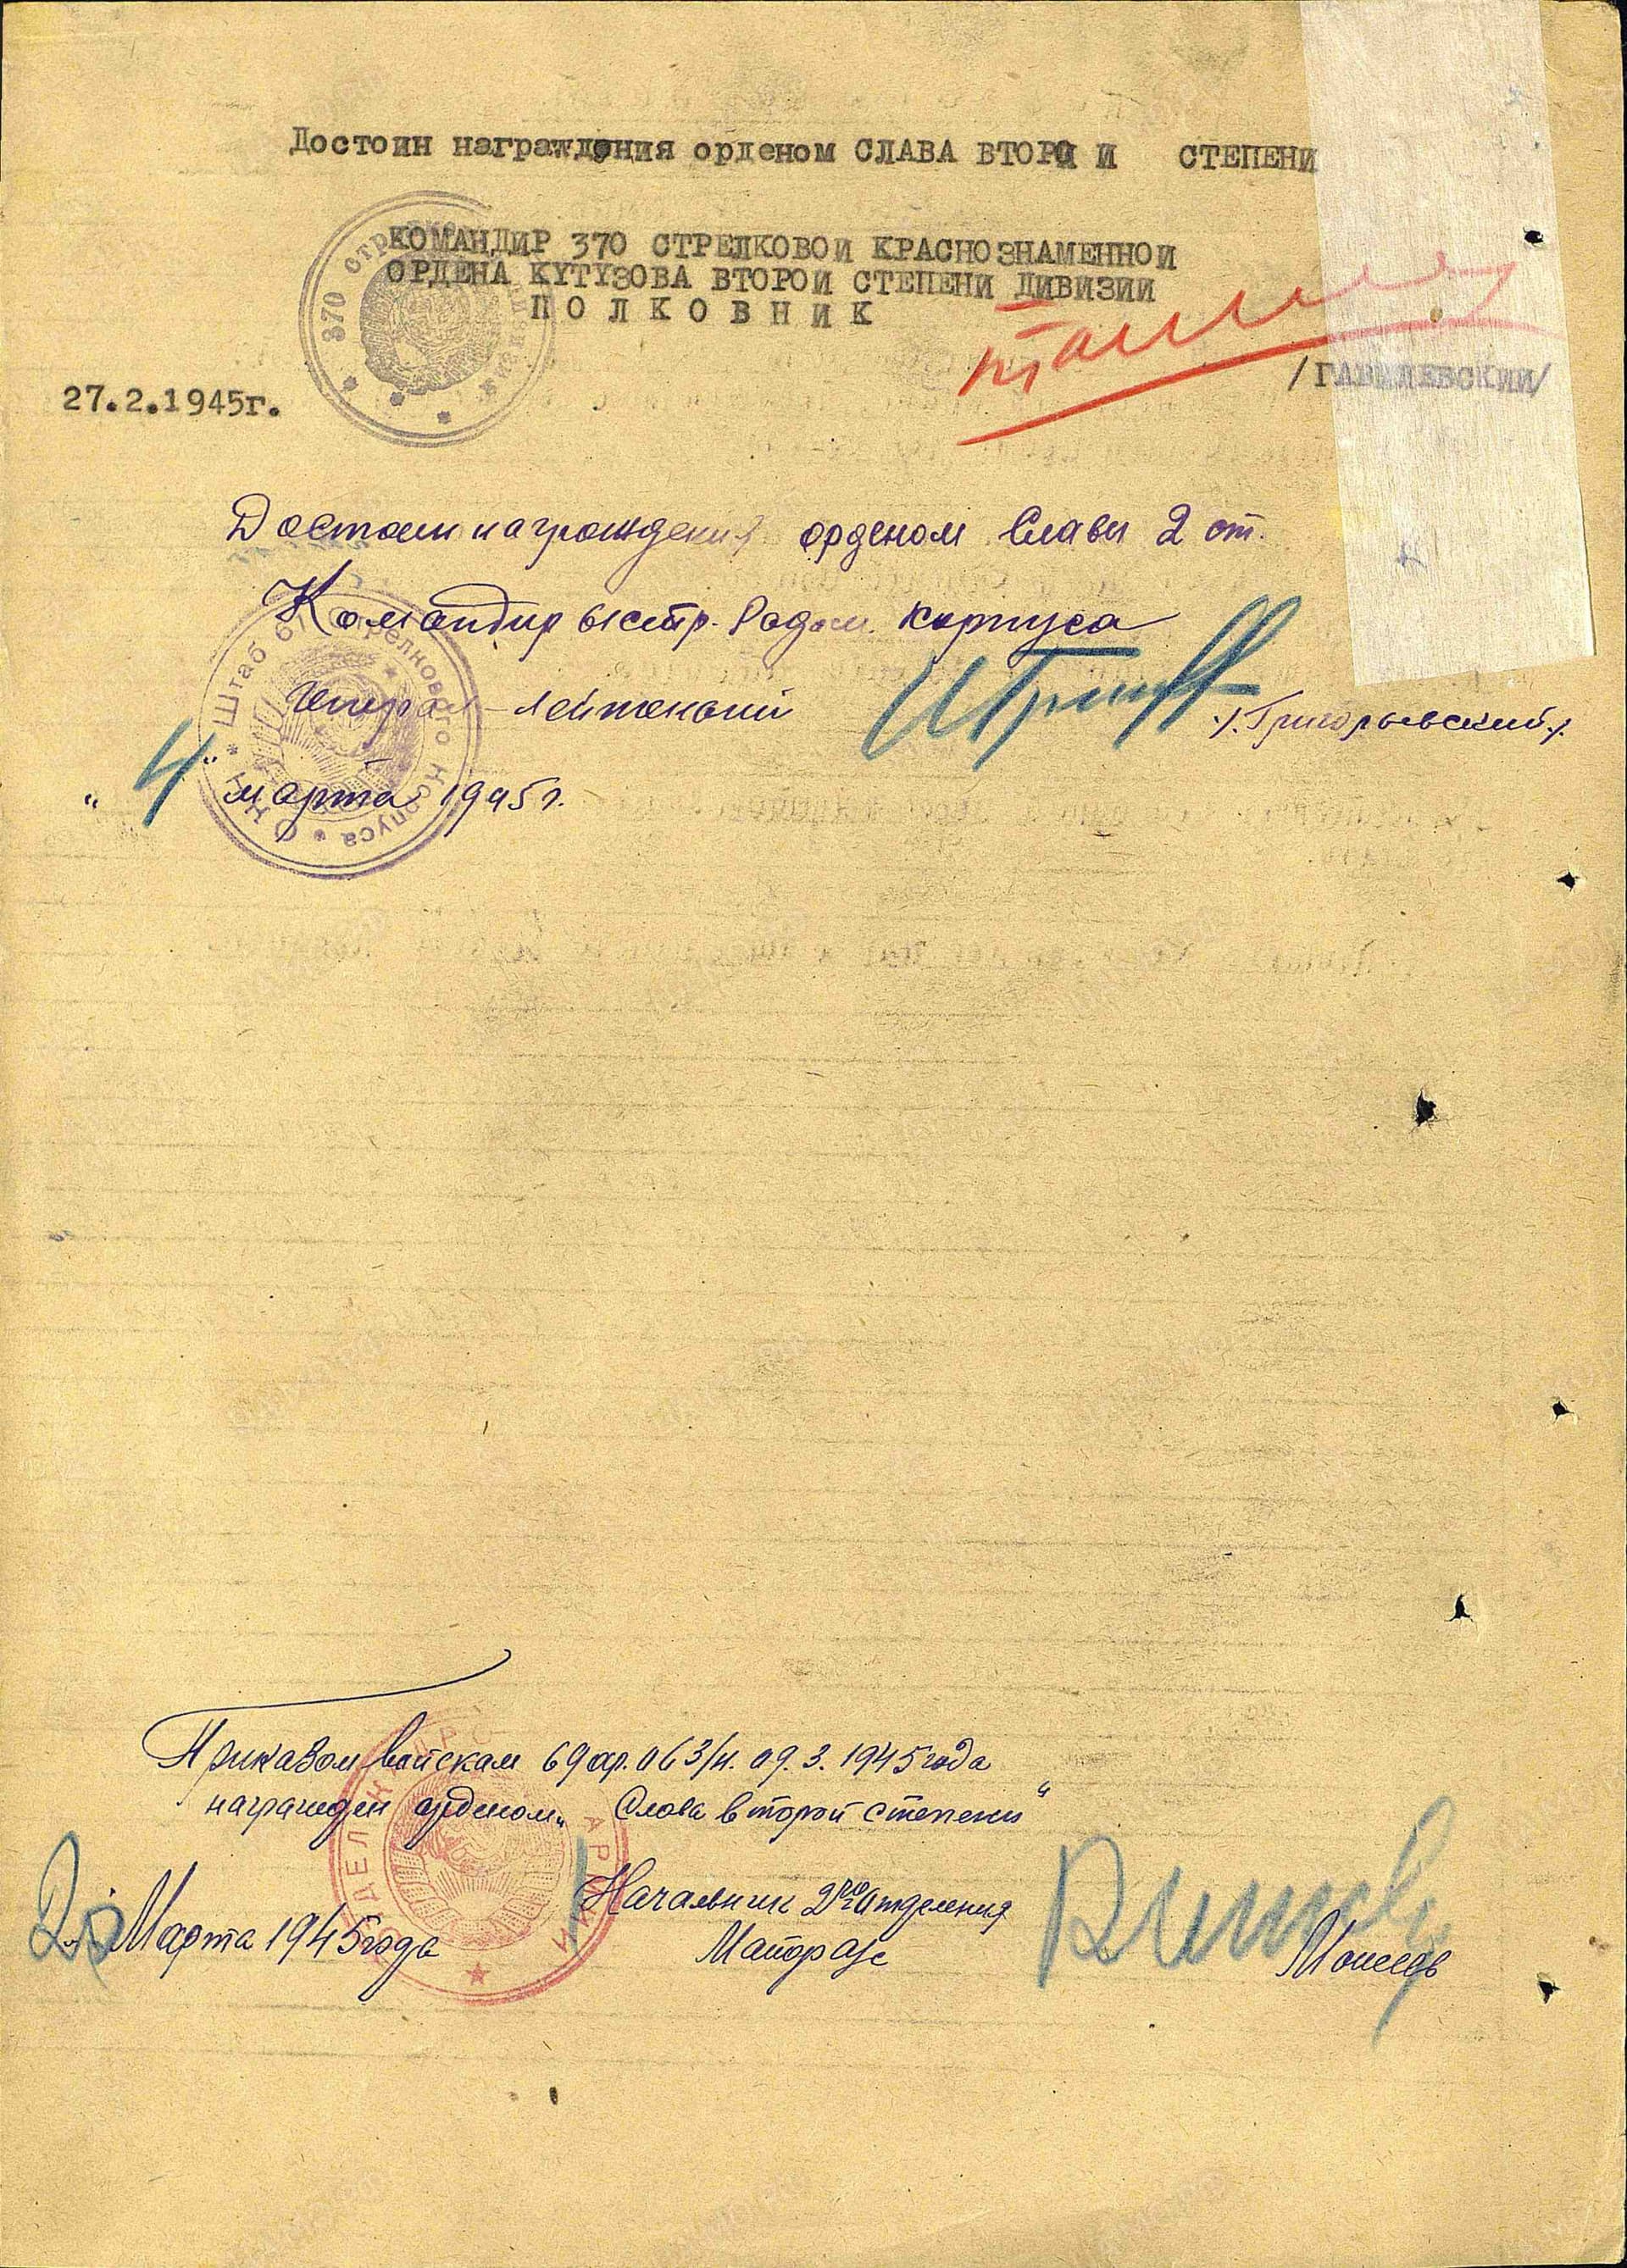 Достоин награждения орденом СЛАВА ВТОРО И СТЕПЕНИ
КОМАНДИР 370 СТРЕЛКОВОИ КРАСНОЗНАМЕННОИ
ОРДЕНА КУТУЗОВА ВТОРОИ СТЕПЕНИ ДИВИЗИИ
ПОЛКОВНИК
/ГАВИЛЕВСКИИ/
27.2.1945г.
370
Достоин награждения орденом Славы 2 ст.
Командир 61 стр. Корпуса
Генерал-лейтенант
/.Григорьевский./
"4" марта 1945г.
Штаб 61 Стрелкового Корпуса * НКО *
Приказом войскам 69 ар. № 63/н. 09.3.1945 года
награжден орденом „Слава второй степени"
Начальник 2го Отделения
Майор а/с
Моисеев
Марта 1945 года
АРМИИ